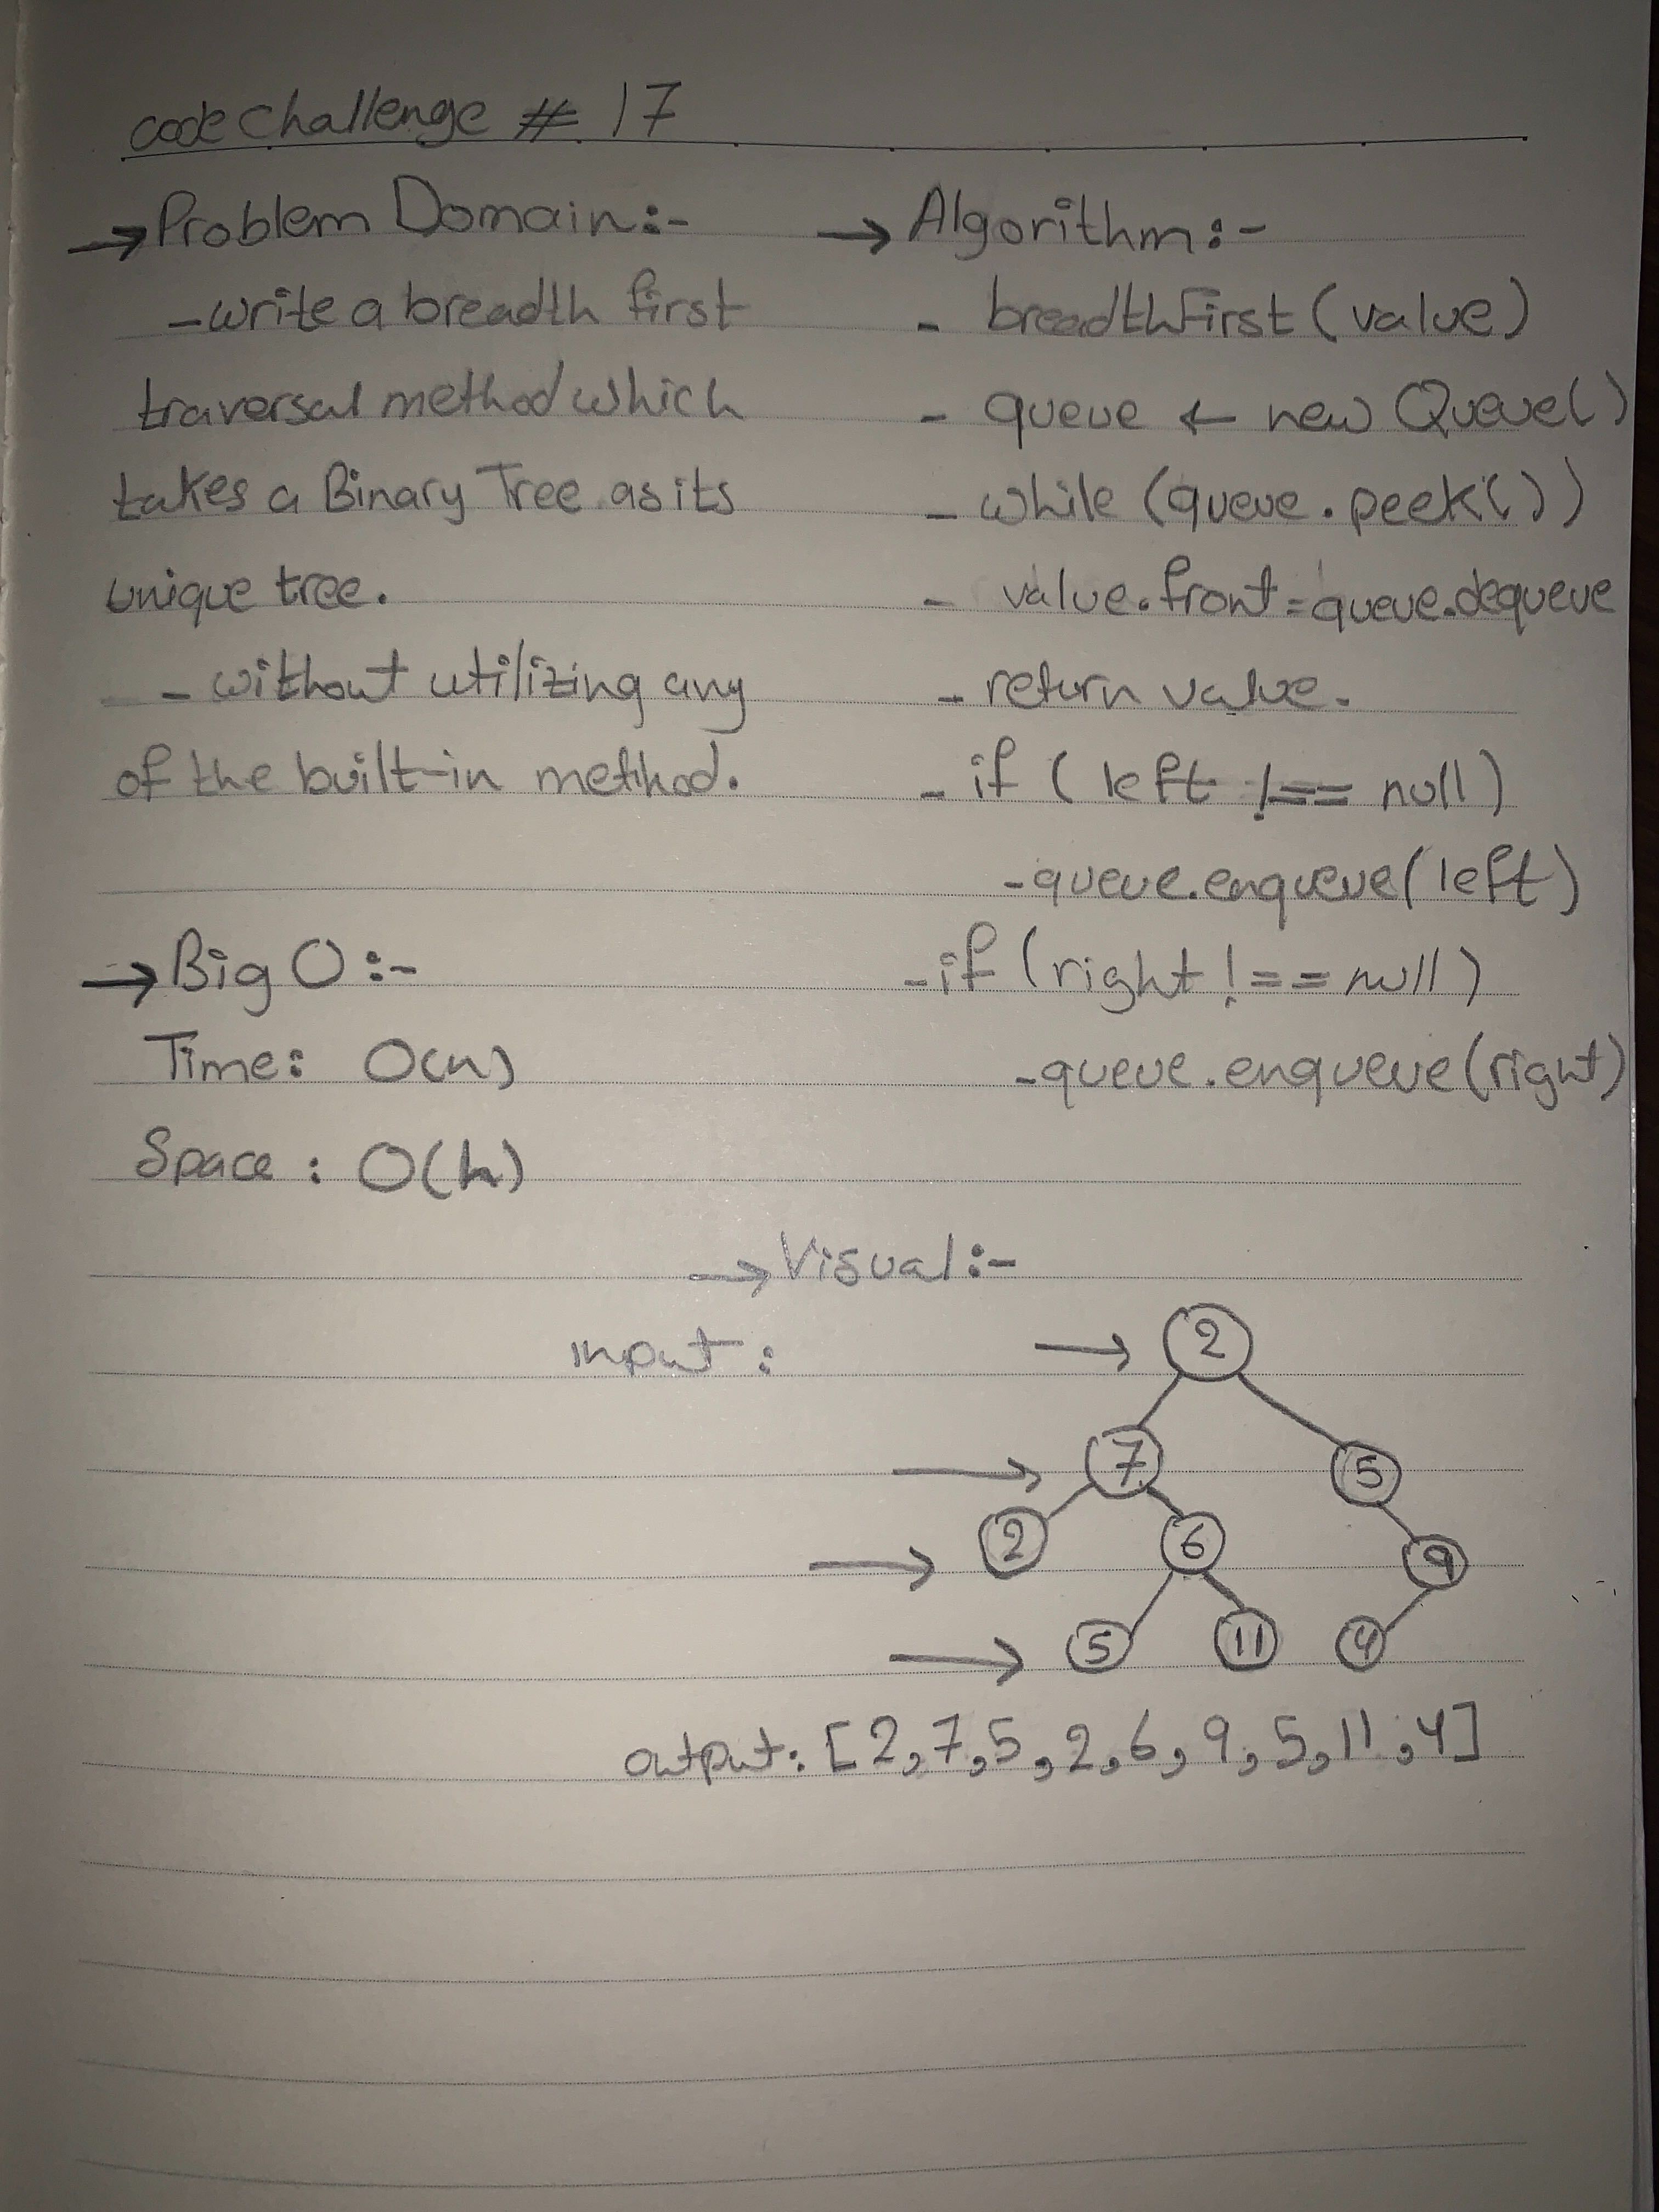 code challenge # 17
→ Problem Domain:-
- write a breadth first
traversal method which
takes a Binary Tree as its
unique tree.
- without utilizing any
of the built-in method.
→ Big O :-
Time: O(n)
Space: O(h)
→ Algorithm:-
- breadthFirst (value)
- queue ← new Queue()
- while (queue.peek())
- value.front = queue.dequeue
- return value.
- if (left !== null)
- queue.enqueue(left)
- if (right !== null)
- queue.enqueue(right)
→ Visual:-
input:
→ 2
→ 7 5
→ 2 6 9
→ 5 11 4
output: [2,7,5,2,6,9,5,11,4]